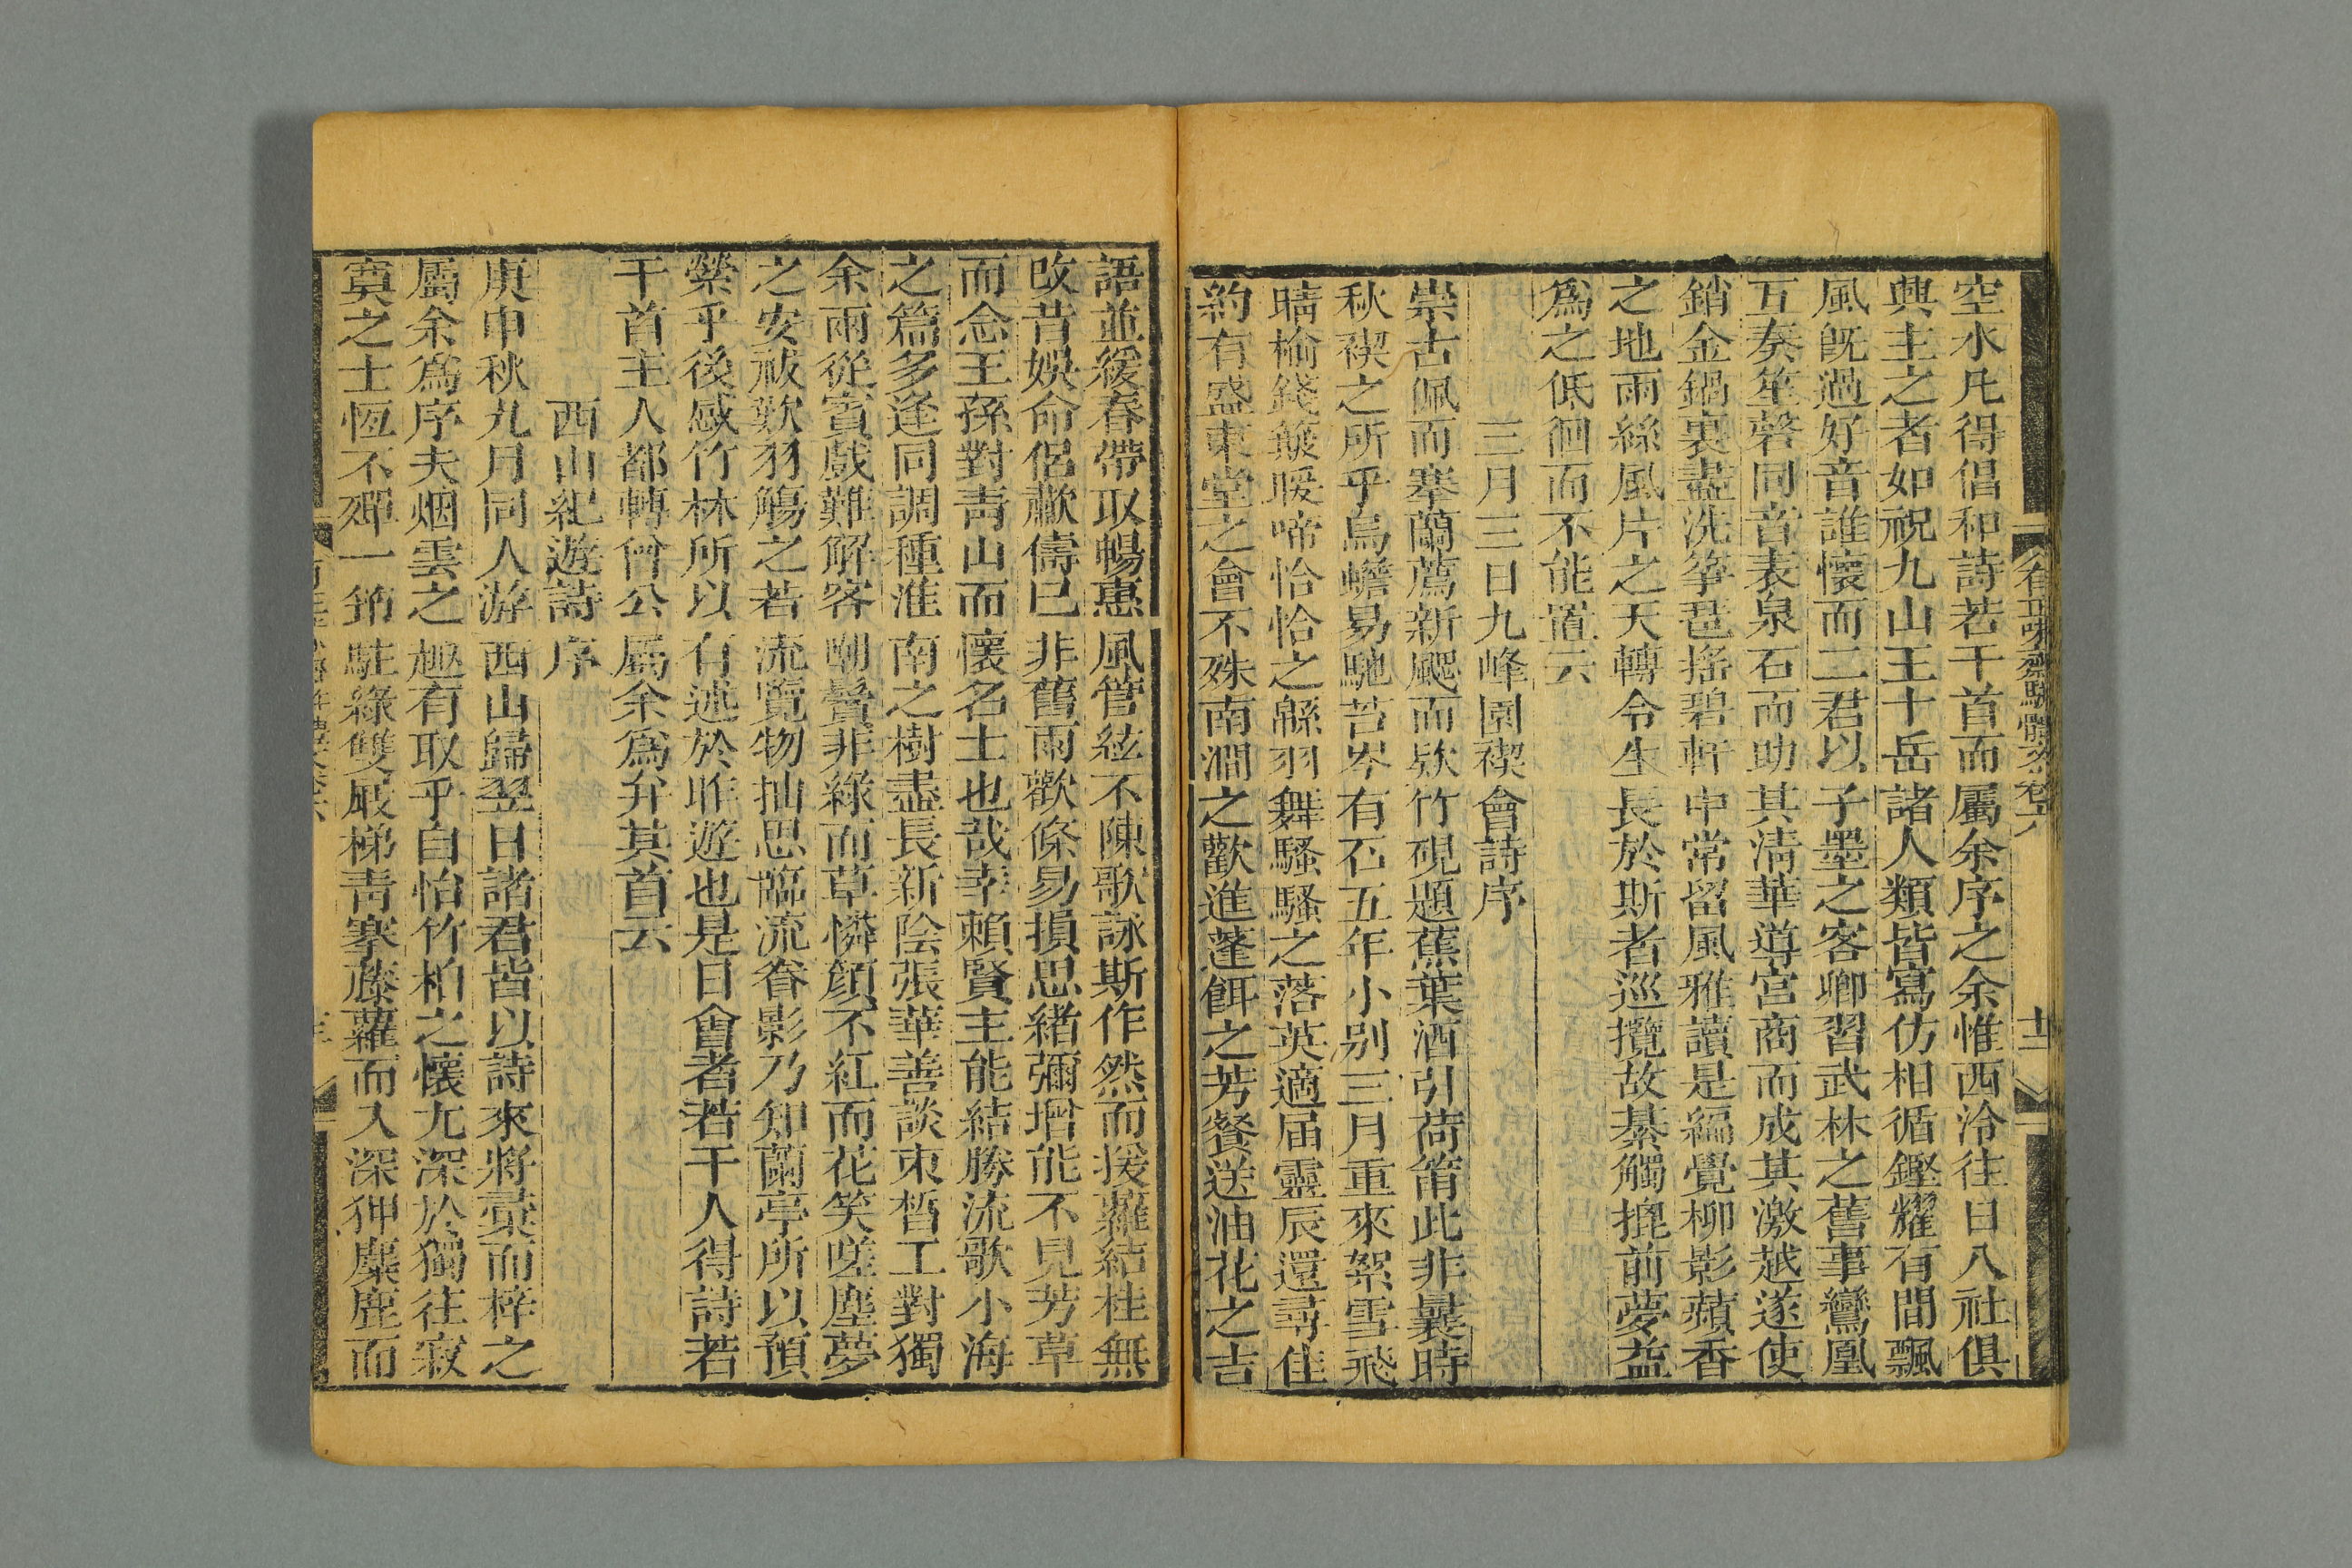 有正味齋駢體文卷八 十二
空水凡得倡和詩若干首而屬余序之余惟西泠往日八社俱
興主之者如祝九山王十岳諸人類皆寫仿相循鏗耀有間飄
風旣過好音誰懷而二君以子墨之客卿習武林之舊事鸞凰
互奏笙磬同音表泉石而助其淸華導宮商而成其激越遂使
銷金鍋裏盡洗箏琶搖碧軒中常留風雅讀是編覺柳影蘋香
之地雨絲風片之天轉令生長於斯者巡攬故綦觸挰前夢益
爲之低徊而不能置云
三月三日九峰園禊會詩序
崇古佩而搴蘭薦新颸而欵竹硯題蕉葉酒引荷筩此非曩時
秋禊之所乎烏蟾易馳苔岑有不五年小别三月重來絮雪飛
晴榆錢簸暖啼恰恰之緜羽舞騷騷之落英適届靈辰還尋佳
約有盛東堂之會不殊南澗之歡進蓬餌之芳餐送油花之吉
語並緩春帶取暢惠風管絃不陳歌詠斯作然而援蘿結桂無
改昔娛命侶歗儔已非舊雨歡條易損思緒彌增能不見芳草
而念王孫對靑山而懷名士也哉幸賴賢主能結勝流歌小海
之篇多逢同調種淮南之樹盡長新陰張華善談束晳工對獨
余雨從賓戲難解客嘲鬢非綠而草憐顔不紅而花笑嗟塵夢
之安祓歎羽觴之若流覽物抽思臨流眷影乃知蘭亭所以預
縈乎後感竹林所以有述於昨遊也是日會者若干人得詩若
干首主人都轉曾公屬余爲弁其首云
西山紀遊詩序
庚申秋九月同人游西山歸翌日諸君皆以詩來將彙而梓之
屬余爲序夫烟雲之趣有取乎自怡竹柏之懷尤深於獨往寂
寞之士恆不殫一筇駐綠雙屐梯靑搴藤蘿而入深狎麋鹿而